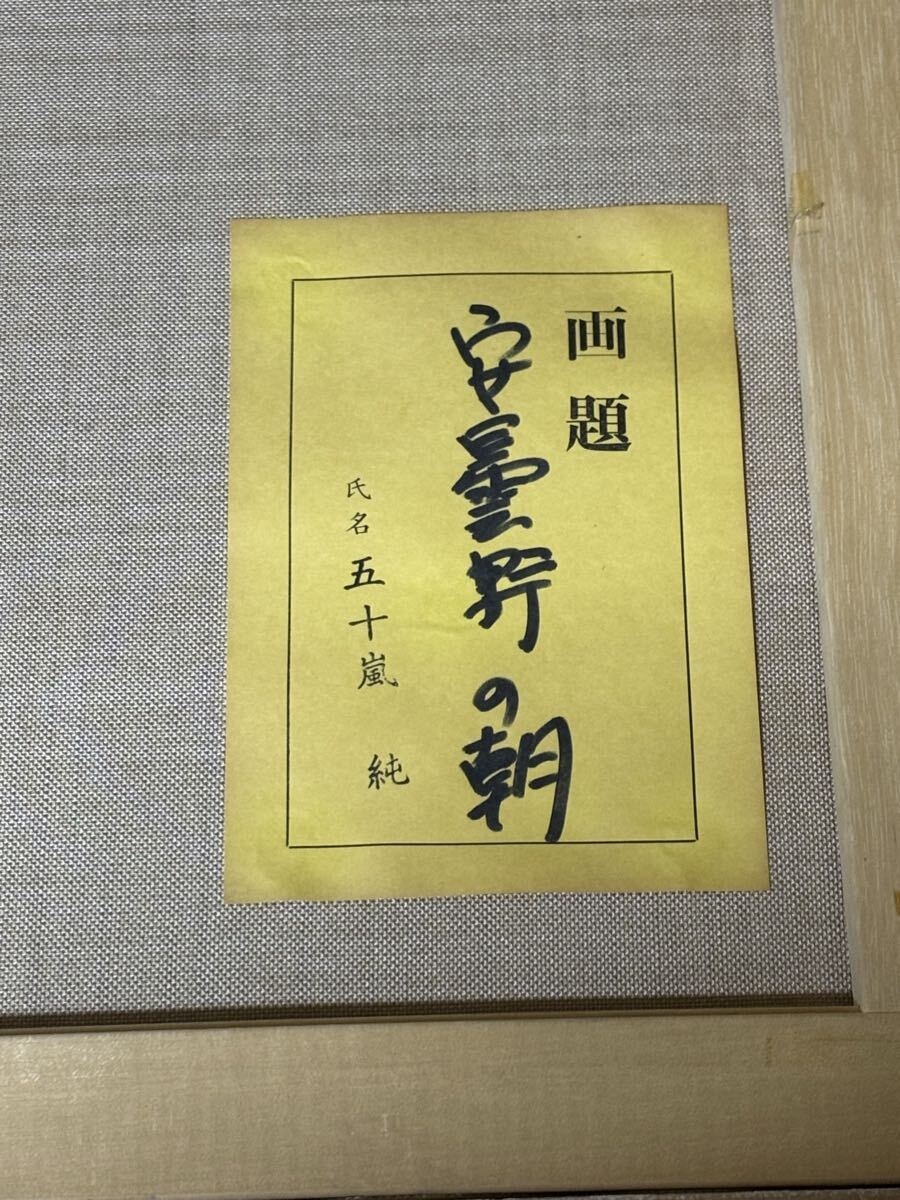 画題
安曇野の朝
氏名 五十嵐 純